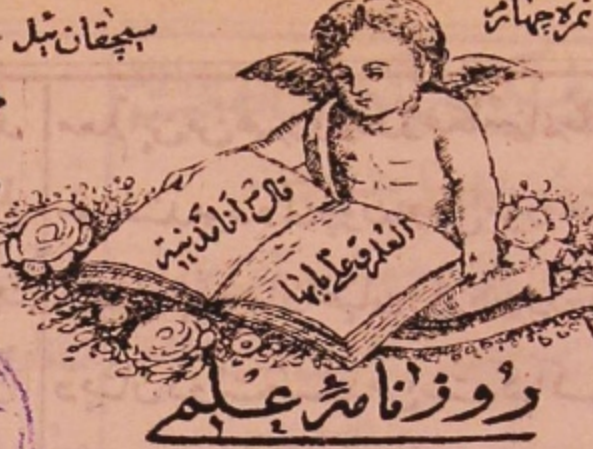 نمره چهارم
سیچقان ئیل
قال ص انا مدینة
العلم و علی بابها
روزنامهٔ علمی